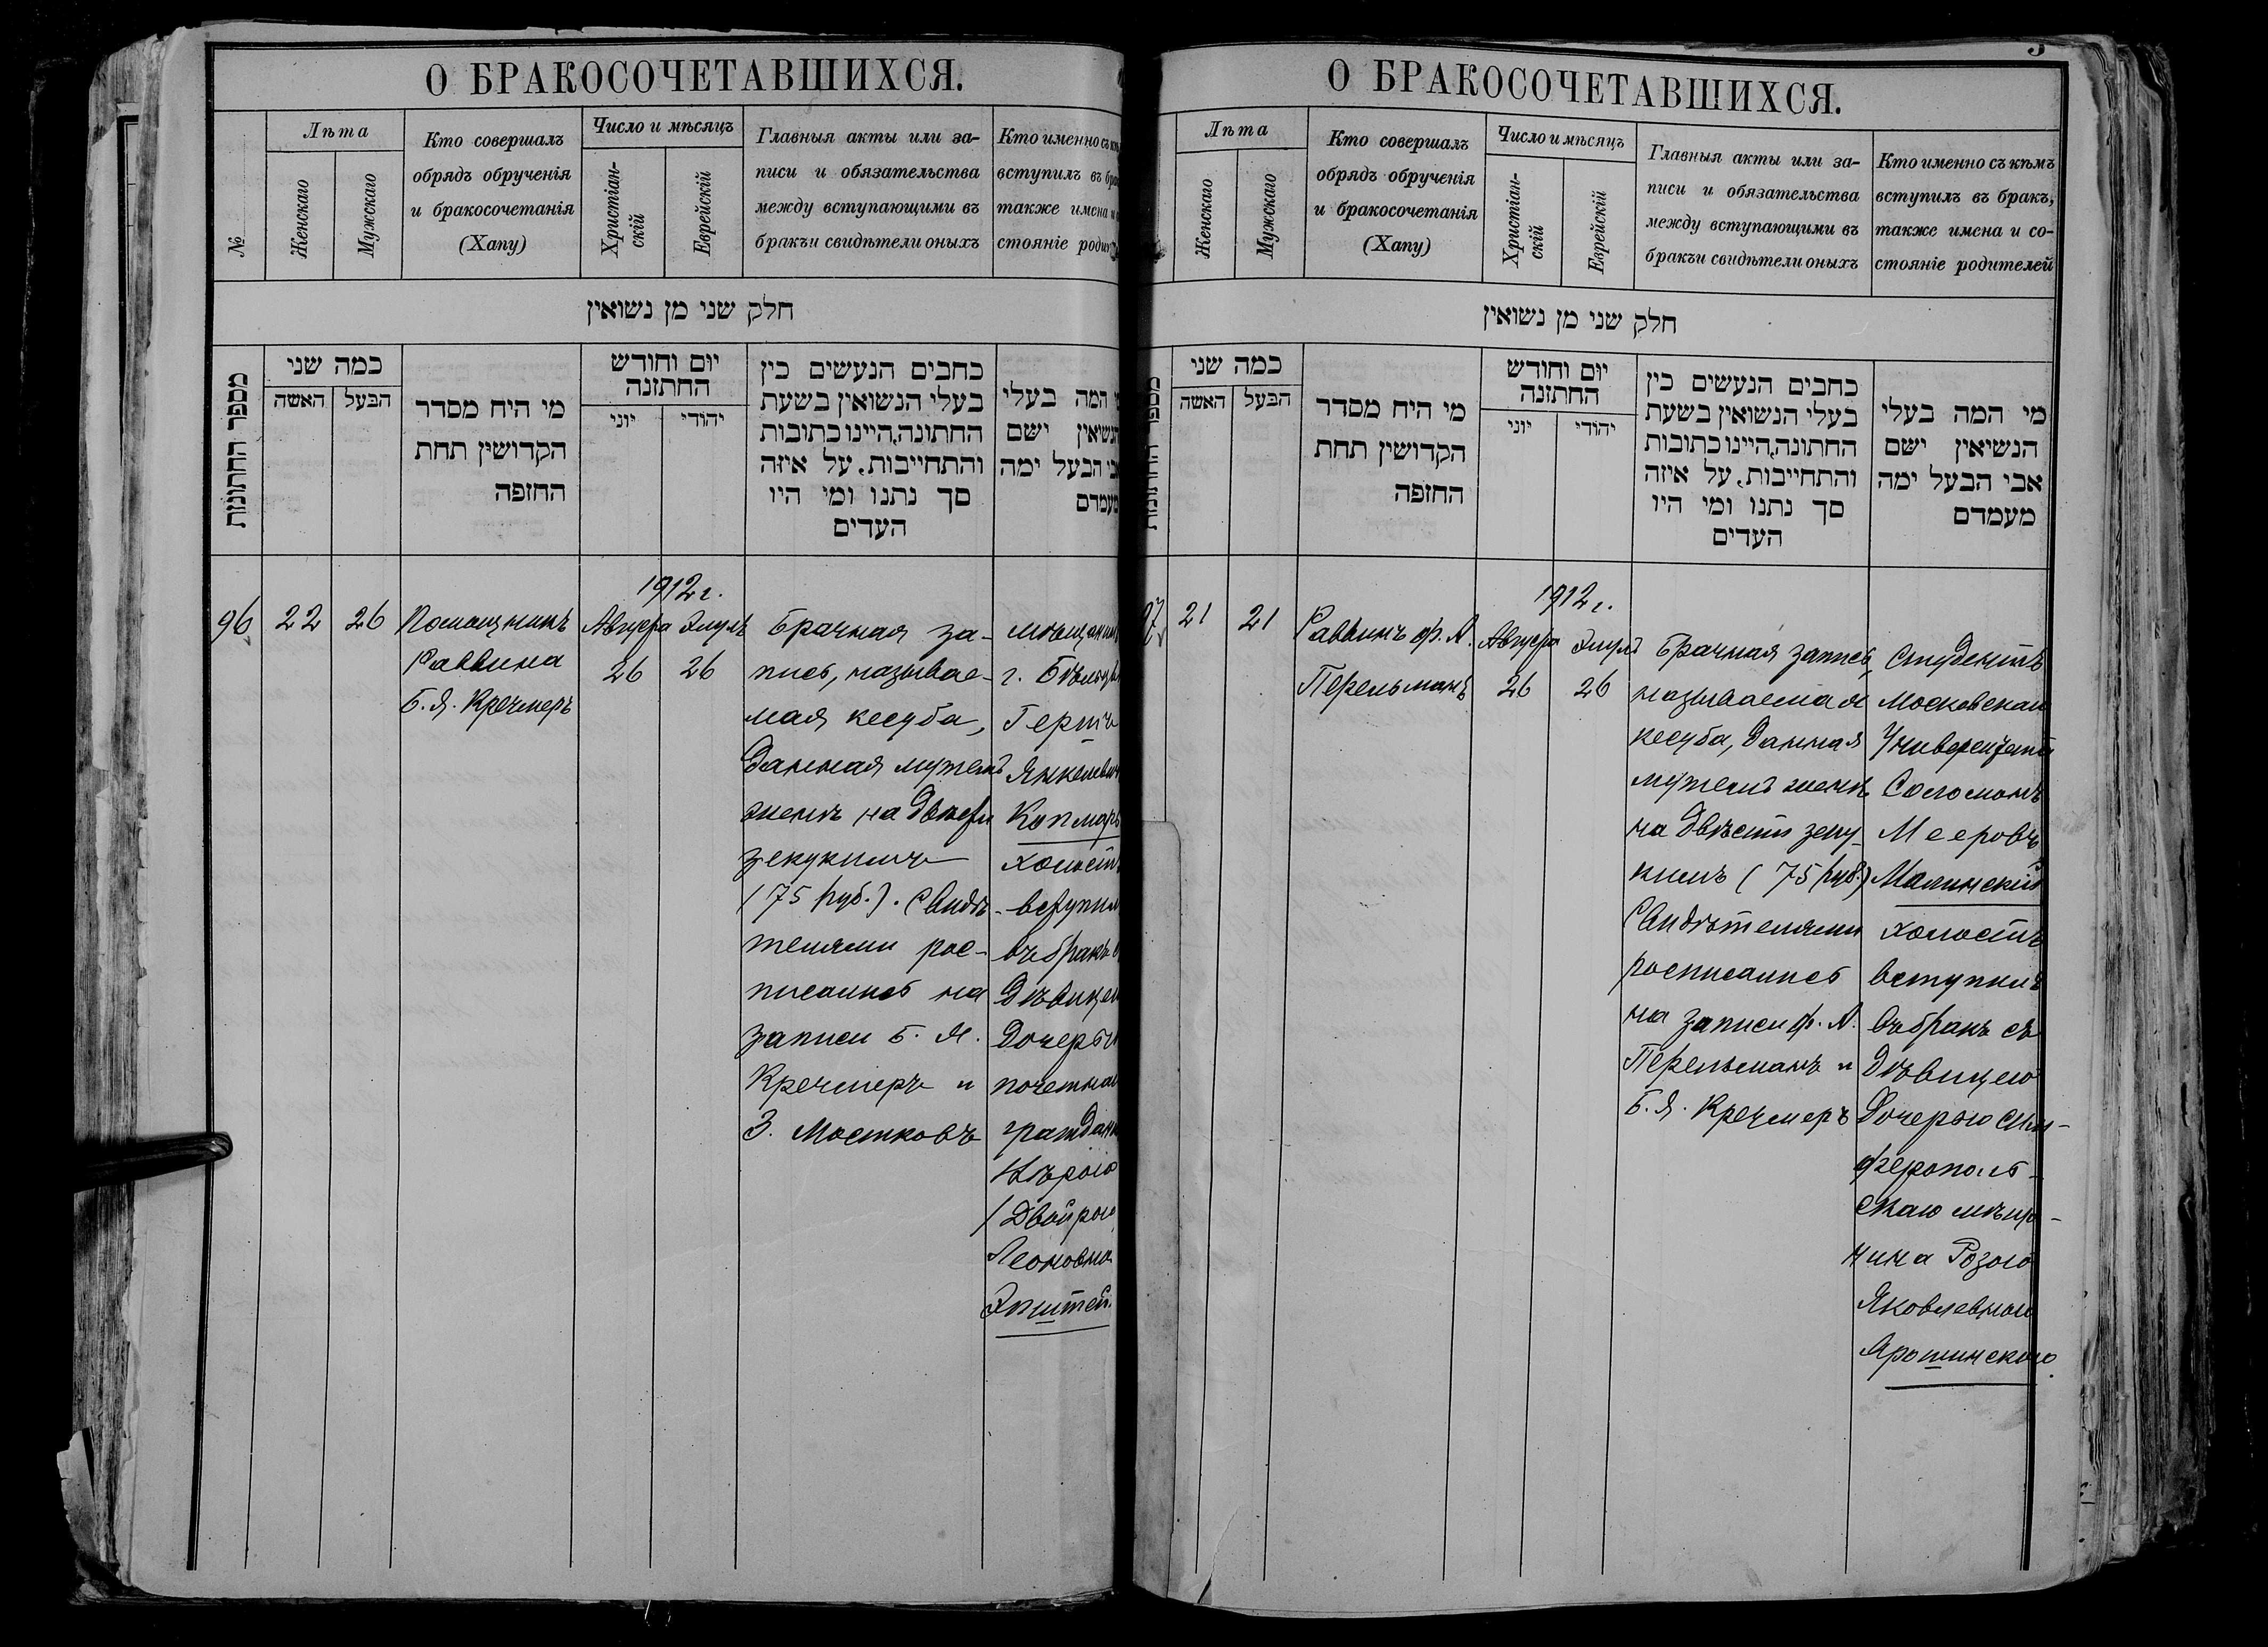 О БРАКОСОЧЕТАВШИХСЯ.
№
Лѣта
Женскаго
Мужскаго
Кто совершалъ
обрядъ обрученія
и бракосочетанія
(Хапу)
Число и мѣсяцъ
Христіан-
скій
Еврейскій
Главныя акты или за-
писи и обязательства
между вступающими въ
бракъи свидѣтели оныхъ
Кто именно съ
вступилъ въ
также имена
стояніе
חלק שני מן נשואין
מספר החתונות
במה שני
האשה
הבעל
מי היח מסדר
הקדושין תחת
החזפה
יום וחודש
החתזנה
יוני
יהודי
כחבים הנעשים כין
בעלי הנשואין בשעת
החתונה,היינו כתובות
והתחייבות, על איזה
סך נתנו ומי היו
העדים
המה בעלי
ישם
הבעל ימה
96
22
26
Помощникъ
Раввина
Б. Я. Кречмеръ
1912 г.
Августа Элулъ
26 26
Брачная за-
пись, называе-
мая кесуба,
данная мужемъ
женѣ на двѣсти
зекукимъ
(75 руб.). Свидѣ-
телями рос-
писались на
записи Б. Я.
Кречмеръ и
З. Мостковъ
г.
Гершъ
холостъ
Леоновна
О БРАКОСОЧЕТАВШИХСЯ.
Лѣта
Женскаго
Мужскаго
Кто совершалъ
обрядъ обрученія
и бракосочетанія
(Хапу)
Число и мѣсяцъ
Христіан-
скій
Еврейскій
Главныя акты или за-
писи и обязательства
между вступающими въ
бракъи свидѣтели оныхъ
Кто именно съ кѣмъ
вступилъ въ бракъ,
также имена и со-
стояніе родителей
חלק שני מן נשואין
במה שני
האשה
הבעל
מי היח מסדר
הקדושין תחת
החזפה
יום וחודש
החתזנה
יוני
יהודי
כחבים הנעשים כין
בעלי הנשואין בשעת
החתונה,היינו כתובות
והתחייבות, על איזה
סך נתנו ומי היו
העדים
מי המה בעלי
הנשיאין ישם
אבי הבעל ימה
מעמדם
97
21
21
Раввинъ Ф. Л.
Перельманъ
1912 г.
Августа Элулъ
26 26
Брачная запись,
называемая
кесуба, данная
мужемъ женѣ
на двѣсти зеку-
кимъ (75 руб.)
Свидѣтелями
росписались
на записи Ф. Л.
Перельманъ и
Б. Я. Кречмеръ
Студентъ
Московскаго
Университета
Соломонъ
Мееровъ
Малинскій
холостъ
вступилъ
въ бракъ съ
дѣвицею
дочерью сим-
ферополь-
скаго мѣща-
нина Розою
Яковлевною
Ярошинскою